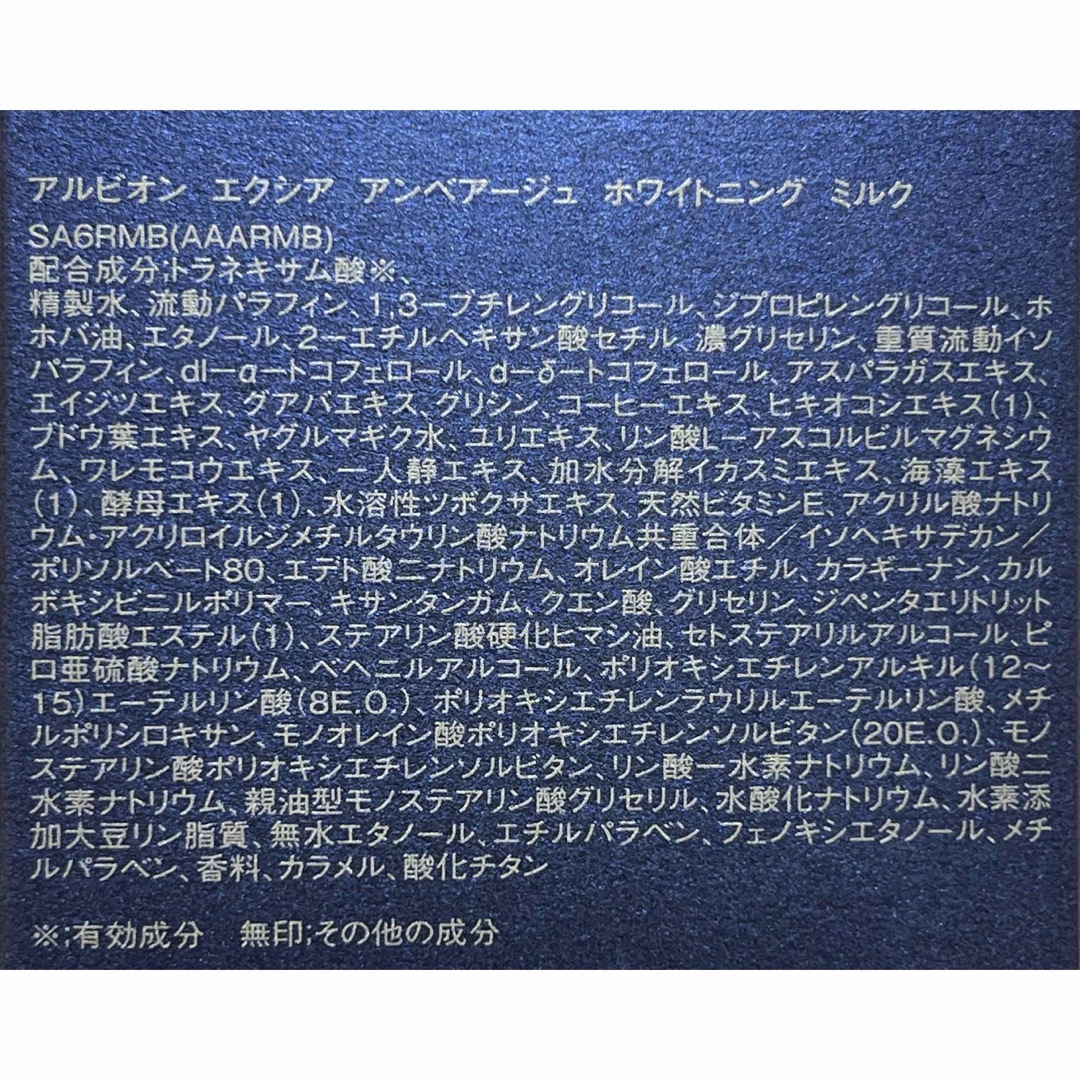 アルビオン エクシア アンベアージュ ホワイトニング ミルク
SA6RMB(AAARMB)
配合成分;トラネキサム酸※、
精製水、流動パラフィン、1,3－ブチレングリコール、ジプロピレングリコール、ホ
ホバ油、エタノール、2－エチルヘキサン酸セチル、濃グリセリン、重質流動イソ
パラフィン、dl－α－トコフェロール、d－δ－トコフェロール、アスパラガスエキス、
エイジツエキス、グアバエキス、グリシン、コーヒーエキス、ヒキオコシエキス(1)、
ブドウ葉エキス、ヤグルマギク水、ユリエキス、リン酸L－アスコルビルマグネシウ
ム、ワレモコウエキス、一人静エキス、加水分解イカスミエキス、海藻エキス
(1)、酵母エキス(1)、水溶性ツボクサエキス、天然ビタミンE、アクリル酸ナトリ
ウム・アクリロイルジメチルタウリン酸ナトリウム共重合体／イソヘキサデカン／
ポリソルベート80、エデト酸二ナトリウム、オレイン酸エチル、カラギーナン、カル
ボキシビニルポリマー、キサンタンガム、クエン酸、グリセリン、ジペンタエリトリット
脂肪酸エステル(1)、ステアリン酸硬化ヒマシ油、セトステアリルアルコール、ピ
ロ亜硫酸ナトリウム、ベヘニルアルコール、ポリオキシエチレンアルキル(12～
15)エーテルリン酸(8E.O.)、ポリオキシエチレンラウリルエーテルリン酸、メチ
ルポリシロキサン、モノオレイン酸ポリオキシエチレンソルビタン(20E.O.)、モノ
ステアリン酸ポリオキシエチレンソルビタン、リン酸一水素ナトリウム、リン酸二
水素ナトリウム、親油型モノステアリン酸グリセリル、水酸化ナトリウム、水素添
加大豆リン脂質、無水エタノール、エチルパラベン、フェノキシエタノール、メチ
ルパラベン、香料、カラメル、酸化チタン
※;有効成分 無印;その他の成分